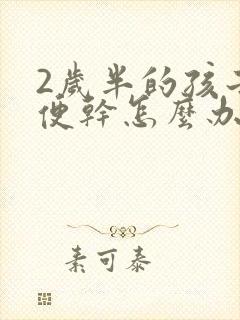 2歲半的孩子
便幹怎麼办
素可泰